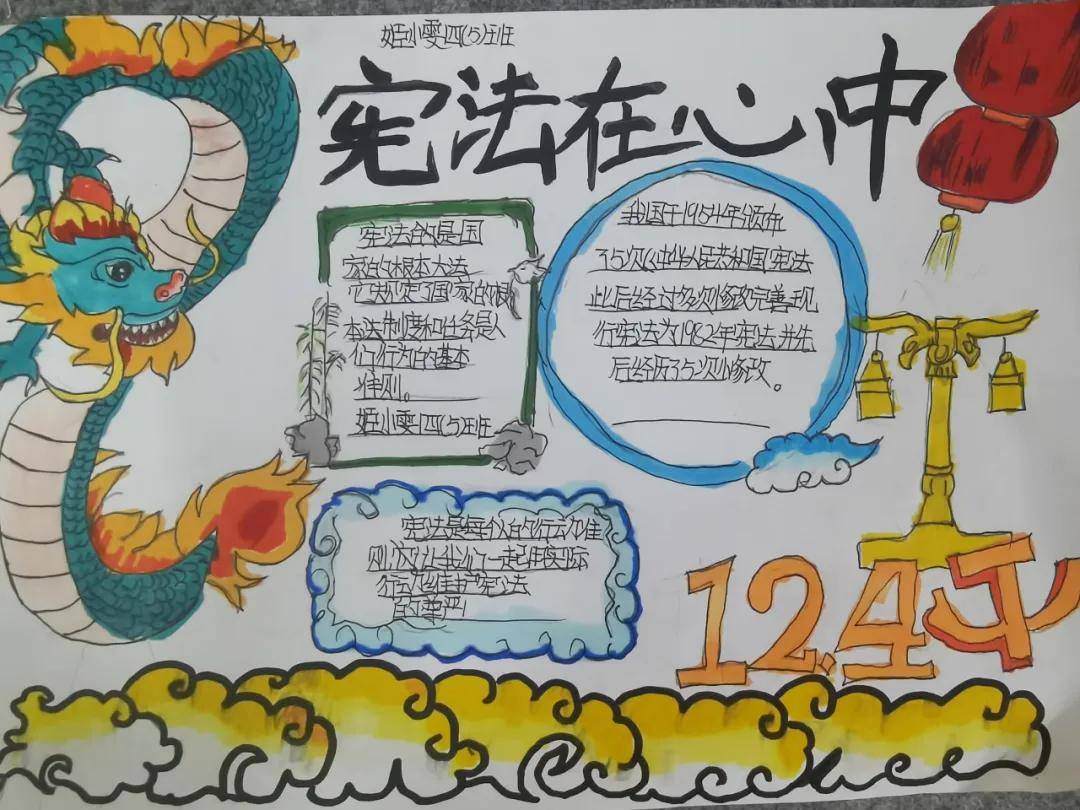 姬小雯四(5)班
宪法在心中
宪法的是国
家的根本大法
它规定了国家的根
本法制度和任务是人
们行为的基本
准则。
姬小雯四(5)班
我国于1954年颁布
了5次《中华人民共和国宪法
此后经过多次修改完善现
行宪法为1982年宪法并先
后经历了5次修改。
宪法是每个人的行动准
则,应让我们一起用实际
行动维护宪法
的尊严!
12.4